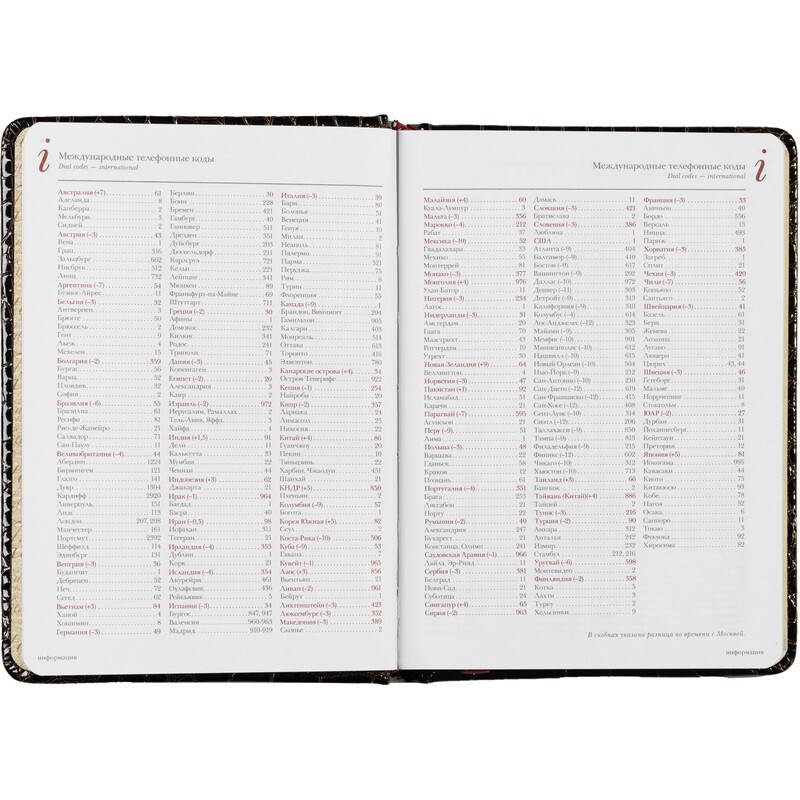 i
Международные телефонные коды
Dial codes — international
Австралия (+7) 61
Аделаида 8
Канберра 2
Мельбурн 3
Сидней 2
Австрия (–3) 43
Вена 1
Грац 316
Зальцбург 662
Инсбрук 512
Линц 732
Аргентина (–7) 54
Буэнос-Айрес 11
Бельгия (–3) 32
Антверпен 3
Брюгге 50
Брюссель 2
Гент 9
Льеж 4
Мехелен 15
Болгария (–2) 359
Бургас 56
Варна 52
Пловдив 32
София 2
Бразилия (–6) 55
Бразилиа 61
Ресифи 81
Рио-де-Жанейро 21
Салвадор 71
Сан-Паулу 11
Великобритания (–4) 44
Абердин 1224
Бирмингем 121
Глазго 141
Дувр 1304
Кардифф 2920
Ливерпуль 151
Лидс 113
Лондон 207, 208
Манчестер 161
Портсмут 2392
Шеффилд 114
Эдинбург 131
Венгрия (–3) 36
Будапешт 1
Дебрецен 52
Печ 72
Сегед 62
Вьетнам (+3) 84
Ханой 4
Хошимин 8
Германия (–3) 49
Берлин 30
Бонн 228
Бремен 421
Гамбург 40
Ганновер 511
Дрезден 351
Дуйсбург 203
Дюссельдорф 211
Карлсруэ 721
Кельн 221
Лейпциг 341
Мюнхен 89
Франкфурт-на-Майне 69
Штутгарт 711
Греция (–2) 30
Афины 1
Домокос 232
Килкис 341
Родос 241
Триполи 71
Дания (–3) 45
Копенгаген 3
Египет (–2) 20
Александрия 3
Каир 2
Израиль (–2) 972
Иерусалим, Рамаллах 2
Тель-Авив, Яффа 3
Хайфа 4
Индия (+1,5) 91
Дели 11
Калькутта 33
Мумбаи 22
Ченнаи 44
Индонезия (+3) 62
Джакарта 21
Ирак (–1) 964
Багдад 1
Басра 40
Иран (–0,5) 98
Исфохан 311
Тегеран 21
Ирландия (–4) 353
Дублин 1
Корк 21
Исландия (–4) 354
Акурейри 461
Оулафсвик 436
Рейкьявик 5
Испания (–3) 34
Бургос 847, 947
Валенсия 960-963
Мадрид 910-919
Италия (–3) 39
Бари 80
Болонья 51
Венеция 41
Генуя 10
Милан 2
Неаполь 81
Палермо 91
Парма 521
Перуджа 75
Рим 6
Турин 11
Флоренция 55
Канада (–9) 1
Брандон, Виннипег 204
Гамильтон 905
Калгари 403
Монреаль 514
Оттава 613
Торонто 416
Эдмонтон 780
Канарские острова (+4) 34
Остров Тенерифе 922
Кения (–1) 254
Найроби 20
Кипр (–2) 357
Ларнака 24
Лимассол 25
Никосия 22
Китай (+4) 86
Гуанчжоу 20
Пекин 10
Тяньцзинь 22
Харбин, Чжаодун 451
Шанхай 21
КНДР (+5) 850
Пхеньян 2
Колумбия (–9) 57
Богота 1
Корея Южная (+5) 82
Сеул 2
Коста-Рика (–10) 506
Куба (–9) 53
Гавана 7
Кувейт (–1) 965
Лаос (+3) 856
Вьентьян 21
Ливан (–2) 961
Бейрут 1
Лихтенштейн (–3) 423
Люксембург (–3) 352
Македония (–3) 389
Скопье 2
информация
i
Международные телефонные коды
Dial codes — international
Малайзия (+4) 60
Куала-Лумпур 3
Мальта (–3) 356
Марокко (–4) 212
Рабат 37
Мексика (–10) 52
Гвадалахара 33
Мехико 55
Монтеррей 81
Монако (–3) 377
Монголия (+4) 976
Улан-Батор 11
Нигерия (–3) 234
Лагос 1
Нидерланды (–3) 31
Амстердам 20
Гаага 70
Маастрихт 43
Роттердам 10
Утрехт 30
Новая Зеландия (+9) 64
Веллингтон 4
Норвегия (–3) 47
Пакистан (+1) 92
Исламабад 51
Карачи 21
Парагвай (–7) 595
Асунсьон 21
Перу (–9) 51
Лима 1
Польша (–3) 48
Варшава 22
Гданьск 58
Краков 12
Познань 61
Португалия (–4) 351
Брага 253
Лиссабон 21
Порту 22
Румыния (–2) 40
Александрия 247
Бухарест 21
Констанца, Олимп 241
Саудовская Аравия (–1) 966
Лайла, Эр-Рияд 11
Сербия (–3) 381
Белград 11
Нови-Сад 21
Суботица 24
Сингапур (+4) 65
Сирия (–2) 963
Дамаск 11
Словакия (–3) 421
Братислава 2
Словения (–3) 386
Любляна 1
США 1
Атланта (–9) 404
Балтимор (–9) 410
Бостон (–9) 617
Вашингтон (–9) 202
Даллас (–10) 972
Денвер (–11) 303
Детройт (–9) 313
Калифорния (–9) 310
Колумбус (–9) 614
Лос-Анджелес (–12) 323
Майами (–9) 305
Мемфис (–10) 901
Миннеаполис (–10) 612
Нашвилл (–10) 615
Новый Орлеан (–10) 504
Нью-Йорк (–9) 212
Сан-Антонио (–10) 210
Сан-Диего (–12) 619
Сан-Франциско (–12) 415
Сан-Хосе (–12) 408
Сент-Луис (–10) 314
Сиэтл (–12) 206
Таллахасси (–9) 850
Тампа (–9) 813
Филадельфия (–9) 215
Финикс (–12) 602
Чикаго (–10) 312
Хьюстон (–10) 713
Таиланд (+3) 66
Бангкок 2
Тайвань (Китай)(+4) 886
Тайпей 2
Тунис (–3) 216
Турция (–2) 90
Анкара 312
Анталья 242
Измир 232
Стамбул 212, 216
Уругвай (–6) 598
Монтевидео 2
Финляндия (–2) 358
Котка 5
Лахти 3
Турку 2
Хельсинки 9
Франция (–3) 33
Авиньон 49
Бордо 556
Версаль 13
Ницца 493
Париж 1
Хорватия (–3) 385
Загреб 1
Сплит 21
Чехия (–3) 420
Чили (–7) 56
Консепсьон 41
Сантьяго 2
Швейцария (–3) 41
Базель 61
Берн 31
Женева 22
Лозанна 21
Лугано 91
Люцерн 41
Цюрих 43, 44
Швеция (–3) 46
Гетеборг 31
Мальме 40
Норрчепинг 11
Стокгольм 8
ЮАР (–2) 27
Дурбан 31
Йоханнесбург 11
Кейптаун 21
Претория 12
Япония (+5) 81
Йокогама 995
Кавасаки 44
Киото 75
Китакюсю 93
Кобе 78
Нагоя 52
Осака 6
Саппоро 11
Токио 3
Фукуока 92
Хиросима 82
В скобках указана разница во времени с Москвой.
информация